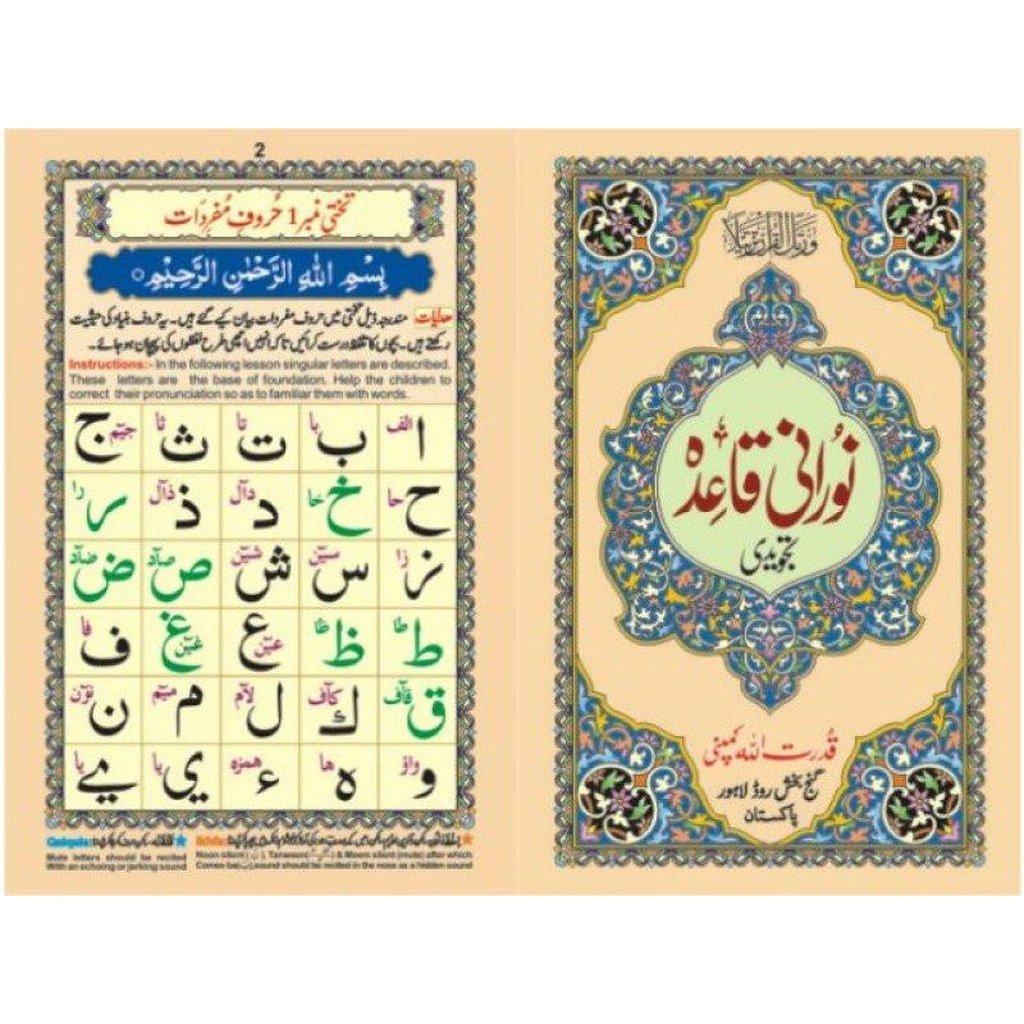 2
تختی نمبر 1 حُروف مُفردَات
بِسْمِ اللّٰهِ الرَّحْمٰنِ الرَّحِيْمِ
ہدایات: مندرجہ ذیل تختی میں حروف مفردات بیان کیے گئے ہیں۔ یہ حروف بنیاد کی حیثیت
رکھتے ہیں۔ بچوں کا تلفظ درست کرائیں تاکہ انہیں اچھی طرح لفظوں کی پہچان ہو جائے۔
Instructions:- In the following lesson singular letters are described.
These letters are the base of foundation. Help the children to
correct their pronunciation so as to familiar them with words.
ا الف ب با ت تا ث ثا ج جیٓم
ح حا خ خا د دآل ذ ذآل ر را
ز زا س سیٓن ش شیٓن ص صآد ض ضآد
ط طا ظ ظا ع عیٓن غ غیٓن ف فا
ق قآف ك کآف ل لآم م میٓم ن نوٓن
و وآؤ ہ ھا ء ھمزہ ی یا ے یا
Qalqala:
Mute letters should be recited
With an echoing or jerking sound
Ikhfa:
Noon silent & Meem silent (mute) after which
sound should be recited in the nose as a hidden sound
وَرَتِّلِ الْقُرْاٰنَ تَرْتِیْلًا
نُورانی قاعِدہ
تجویدی
قُدرت اللہ کمپنی
گنج بخش روڈ لاہور
پاکستان